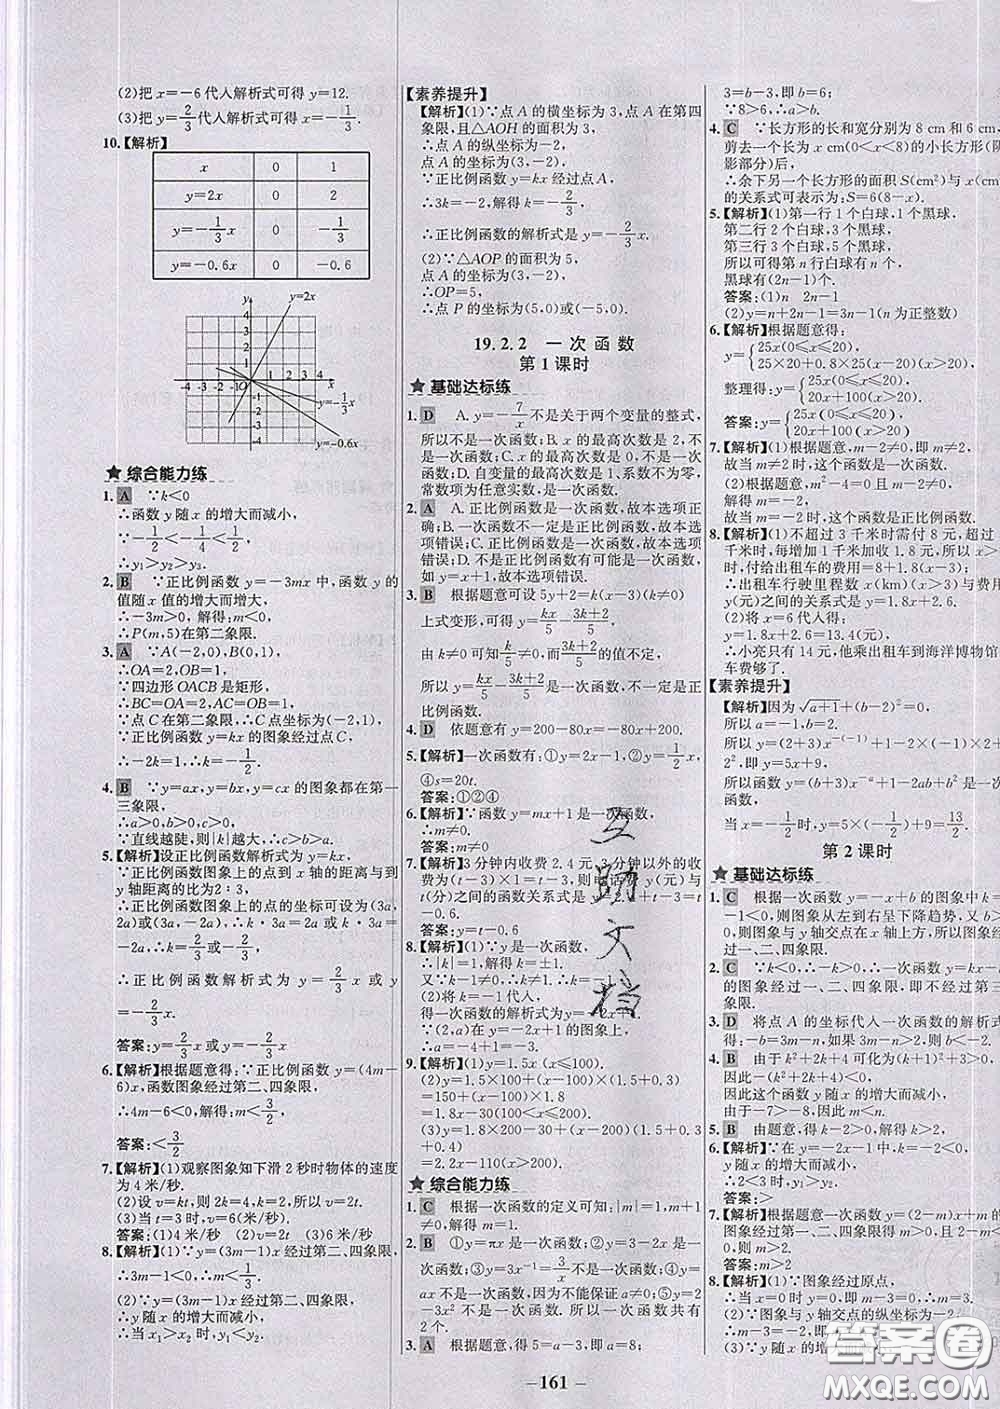 (2)把 x=-6 代入解析式可得 y=12.
(3)把 y=2/3 代入解析式可得 x=-1/3.
10.【解析】
x 0 1
y=2x 0 2
y=-1/3x 0 -1/3
y=-0.6x 0 -0.6
y
y=2x
4
3
2
1
-4 -3 -2 -1 O 1 2 3 4 x
-1
-2
-4
y=-1/3x
y=-0.6x
★综合能力练
1. A ∵k<0
∴函数 y 随 x 的增大而减小,
∵-1/2<-1/4<1/2,
∴y₁>y₂>y₃.
2. B ∵正比例函数 y=-3mx 中,函数 y 的
值随 x 值的增大而增大,
∴-3m>0,解得:m<0,
∴P(m,5)在第二象限.
3. A ∵A(-2,0),B(0,1),
∴OA=2,OB=1,
∵四边形 OACB 是矩形,
∴BC=OA=2,AC=OB=1,
∵点 C 在第二象限,∴C 点坐标为(-2,1),
∵正比例函数 y=kx 的图象经过点 C,
∴-2k=1,∴k=-1/2.
4. B ∵y=ax,y=bx,y=cx 的图象都在第一
三象限,
∴a>0,b>0,c>0,
∵直线越陡,则|k|越大,∴c>b>a.
5.【解析】设正比例函数解析式为 y=kx,
∵正比例函数图象上的点到 x 轴的距离与到
y 轴距离的比为2∶3,
∴正比例函数图象上的点的坐标可设为(3a,
2a)或(3a,-2a),∴k·3a=2a或k·3a=
-2a,∴k=2/3或-2/3,
∴正比例函数解析式为 y=2/3x 或 y=
-2/3x.
答案:y=2/3x 或 y=-2/3x
6.【解析】根据题意得:∵正比例函数 y=(4m-
6)x,函数图象经过第二、四象限,
∴4m-6<0,解得:m<3/2.
答案:<3/2
7.【解析】(1)观察图象知下滑 2 秒时物体的速度
为 4 米/秒.
(2)设 v=kt,则 2k=4,k=2,所以 v=2t.
(3)当 t=3 时,v=6(米/秒).
答案:(1)4 米/秒 (2)v=2t (3)6 米/秒
8.【解析】(1)∵y=(3m-1)x 经过第二、四象限,
∴3m-1<0,∴m<1/3.
(2)∵y=(3m-1)x 经过第二、四象限,
∴y 随 x 的增大而减小,
∴当 x₁>x₂ 时,y₁<y₂.
【素养提升】
【解析】(1)∵点 A 的横坐标为 3,点 A 在第四
象限,且△AOH 的面积为 3,
∴点 A 的纵坐标为-2,
∴点 A 的坐标为(3,-2),
∵正比例函数 y=kx 经过点 A,
∴3k=-2,解得 k=-2/3,
∴正比例函数的解析式是 y=-2/3x.
(2)∵△AOP 的面积为 5,
点 A 的坐标为(3,-2),
∴OP=5,
∴点 P 的坐标为(5,0)或(-5,0).
19.2.2 一次函数
第 1 课时
★基础达标练
1. D A. y=-7/x 不是关于两个变量的整式,
所以不是一次函数;B. x 的最高次数是 2,不是
一次函数;C. x 的最高次数是 0,不是一次
函数;D. 自变量的最高次数是 1,系数不为零,
常数项为任意实数,是一次函数.
2. A A. 正比例函数是一次函数,故本选项正
确;B. 一次函数不一定是正比例函数,故本选
项错误;C. 正比例函数是一次函数,故本选项
错误;D. 不是正比例函数有可能是一次函数,
如 y=x+1,故本选项错误.
3. B 根据题意可设 5y+2=k(x-3)(k≠0)
上式变形,可得:y=kx/5-3k+2/5,
由 k≠0 可知 k/5≠0,3k+2/5 的值不定,
所以 y=kx/5-3k+2/5 是一次函数,不一定是正
比例函数.
4. D 依题意有 y=200-80x=-80x+200.
5.【解析】一次函数有:①y=2x-1,②y=-1/2x,
④s=20t.
答案:①②④
6.【解析】∵函数 y=mx+1 是一次函数,
∴m≠0.
答案:m≠0
7.【解析】3 分钟内收费 2.4 元,3 分钟以外的收
费为(t-3)×1=t-3,则电话费 y(元)与
t(分)之间的函数关系式是 y=2.4+t-3=t
-0.6.
答案:y=t-0.6
8.【解析】(1)∵y 是一次函数,
∴|k|=1,解得 k=±1.
又∵k-1≠0,∴k≠1.∴k=-1.
(2)将 k=-1 代入,
得一次函数的解析式为 y=-2x+1.
∵(2,a)在 y=-2x+1 的图象上,
∴a=-4+1=-3.
9.【解析】(1)y=1.5x (x≤100).
(2)y=1.5×100+(x-100)(1.5+0.3)
=150+(x-100)×1.8
=1.8x-30(100<x≤200).
(3)y=1.8×200-30+(x-200)(1.5+0.3
+0.4)
=2.2x-110(x>200).
★综合能力练
1. C 根据一次函数的定义可知:|m|=1,m+1
≠0,解得 m=1.
2. B ①y=πx 是一次函数;②y=3-2x 是一次
函数;③y=3x⁻¹=3/x 不是一次函数;④y=
ax 不是一次函数,因为不能保证 a≠0;⑤y=2
-3x² 不是一次函数. 所以一次函数共有
2 个.
3. A 根据题意,得 5=a-3,即 a=8;
3=b-3,即 b=6;
∵8>6,∴a>b.
4. C ∵长方形的长和宽分别为 8 cm 和 6 cm,
剪去一个长为 x cm(0<x<8)的小长方形(阴
影部分)后,
∴余下另一个长方形的面积 S(cm²)与 x(cm)
的关系式可表示为,S=6(8-x).
5.【解析】(1)第一行 1 个白球,1 个黑球,
第二行 2 个白球,3 个黑球,
第三行 3 个白球,5 个黑球,
所以可得第 n 行白球有 n 个,
黑球有(2n-1)个.
答案:(1)n 2n-1
(2)y=n+2n-1=3n-1(n 为正整数)
6.【解析】根据题意得:
y={25x(0≤x≤20)
25×20+0.8×25(x-20)(x>20),
整理得:y={25x(0≤x≤20)
20x+100(x>20).
答案:y={25x(0≤x≤20)
20x+100(x>20)
7.【解析】(1)根据题意,m-2≠0,即 m≠2,
故当 m≠2 时,此函数是一次函数.
(2)根据题意,m²-4=0 且 m-2≠0,
解得 m=-2,
故当 m=-2 时,此函数是正比例函数.
8.【解析】(1)不超过 3 千米时需付 8 元,超过
千米时,每增加 1 千米收 1.8 元,所以 x>3
时,付给出租车的费用=8+1.8(x-3).
∴出租车行驶里程数 x(km)(x>3)与费用
y(元)之间的关系式是 y=1.8x+2.6.
(2)将 x=6 代入得:
y=1.8×6+2.6=13.4(元),
∴小亮只有 14 元,他乘出租车到海洋博物馆
车费够了.
【素养提升】
【解析】因为√a+1+(b-2)²=0,
所以 a=-1,b=2.
所以 y=(2+3)x⁻⁽⁻¹⁾+1-2×(-1)×2+2²,
即 y=5x+9,
所以函数 y=(b+3)x⁻ᵃ+1-2ab+b² 是一次
函数,
当 x=-1/2 时,y=5×(-1/2)+9=13/2.
第 2 课时
★基础达标练
1. C 根据一次函数 y=-x+b 的图象中 k=
-1<0,则图象从左到右呈下降趋势,又 b>
0,所以图象与 y 轴交点在 x 轴上方,所以图象
过一、二、四象限.
2. C ∵k<0,∴-k>0,∴一次函数 y=kx-k
的图象经过第一、二、四象限,即不经过第三
象限.
3. D 将点 A 的坐标代入一次函数的解析式
得:-b=3m-n,如果 3m-n>2,则 b<-2.
4. B 由于 k²+2k+4 可化为(k+1)²+3>0,
因此-(k²+2k+4)<0,
因此这个函数 y 随 x 的增大而减小,
由于-7>-8,因此 m<n.
5. B 由题意,得 k-2>0,解得 k>2.
6.【解析】∵在 y=-2x-1 中,k=-2<0,
y 随 x 的增大而减小,
∴2<3 时,y₁>y₂.
答案:>
7.【解析】根据题意一次函数 y=(2-m)x+m
的图象经过第一、二、四象限,
所以 2-m<0,m>0,解得 m>2.
答案:m>2
8.【解析】(1)∵图象经过原点,
∴当 x=0 时,y=0,
(2)∵图象与 y 轴交点的纵坐标为-2,
∴当 x=0 时,y=-2,
(3)∵y 随 x 的增大而减小,
互助文档
答案圈
MXQE.COM
- 161 -